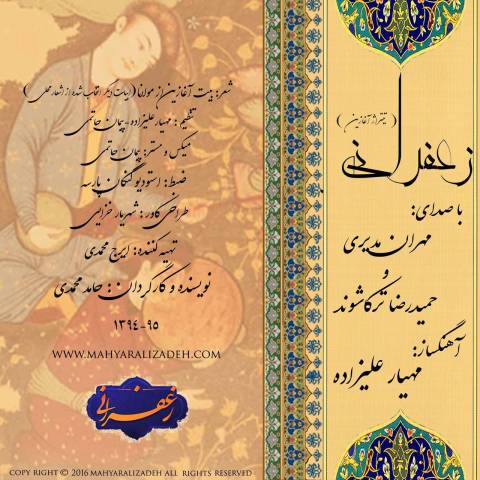 (تیتراژ آغازین)
زعفرانی
با صدای:
مهران مدیری
و
حمیدرضا ترکاشوند
آهنگساز:
مهیار علیزاده
شعر: بیت آغازین از مولانا (ابیات دیگر اقتباس شده از اشعار محلی)
تنظیم: مهیار علیزاده-پیمان حاتمی
میکس و مستر: پیمان حاتمی
ضبط: استودیو کنگان پارسه
طراحی کاور: شهریار خزایی
تهیه کننده: ایرج محمدی
نویسنده و کارگردان: حامد محمدی
۱۳۹۴-۹۵
WWW.MAHYARALIZADEH.COM
زعفرانی
COPY RIGHT © 2016 MAHYARALIZADEH ALL RIGHTS RESERVED